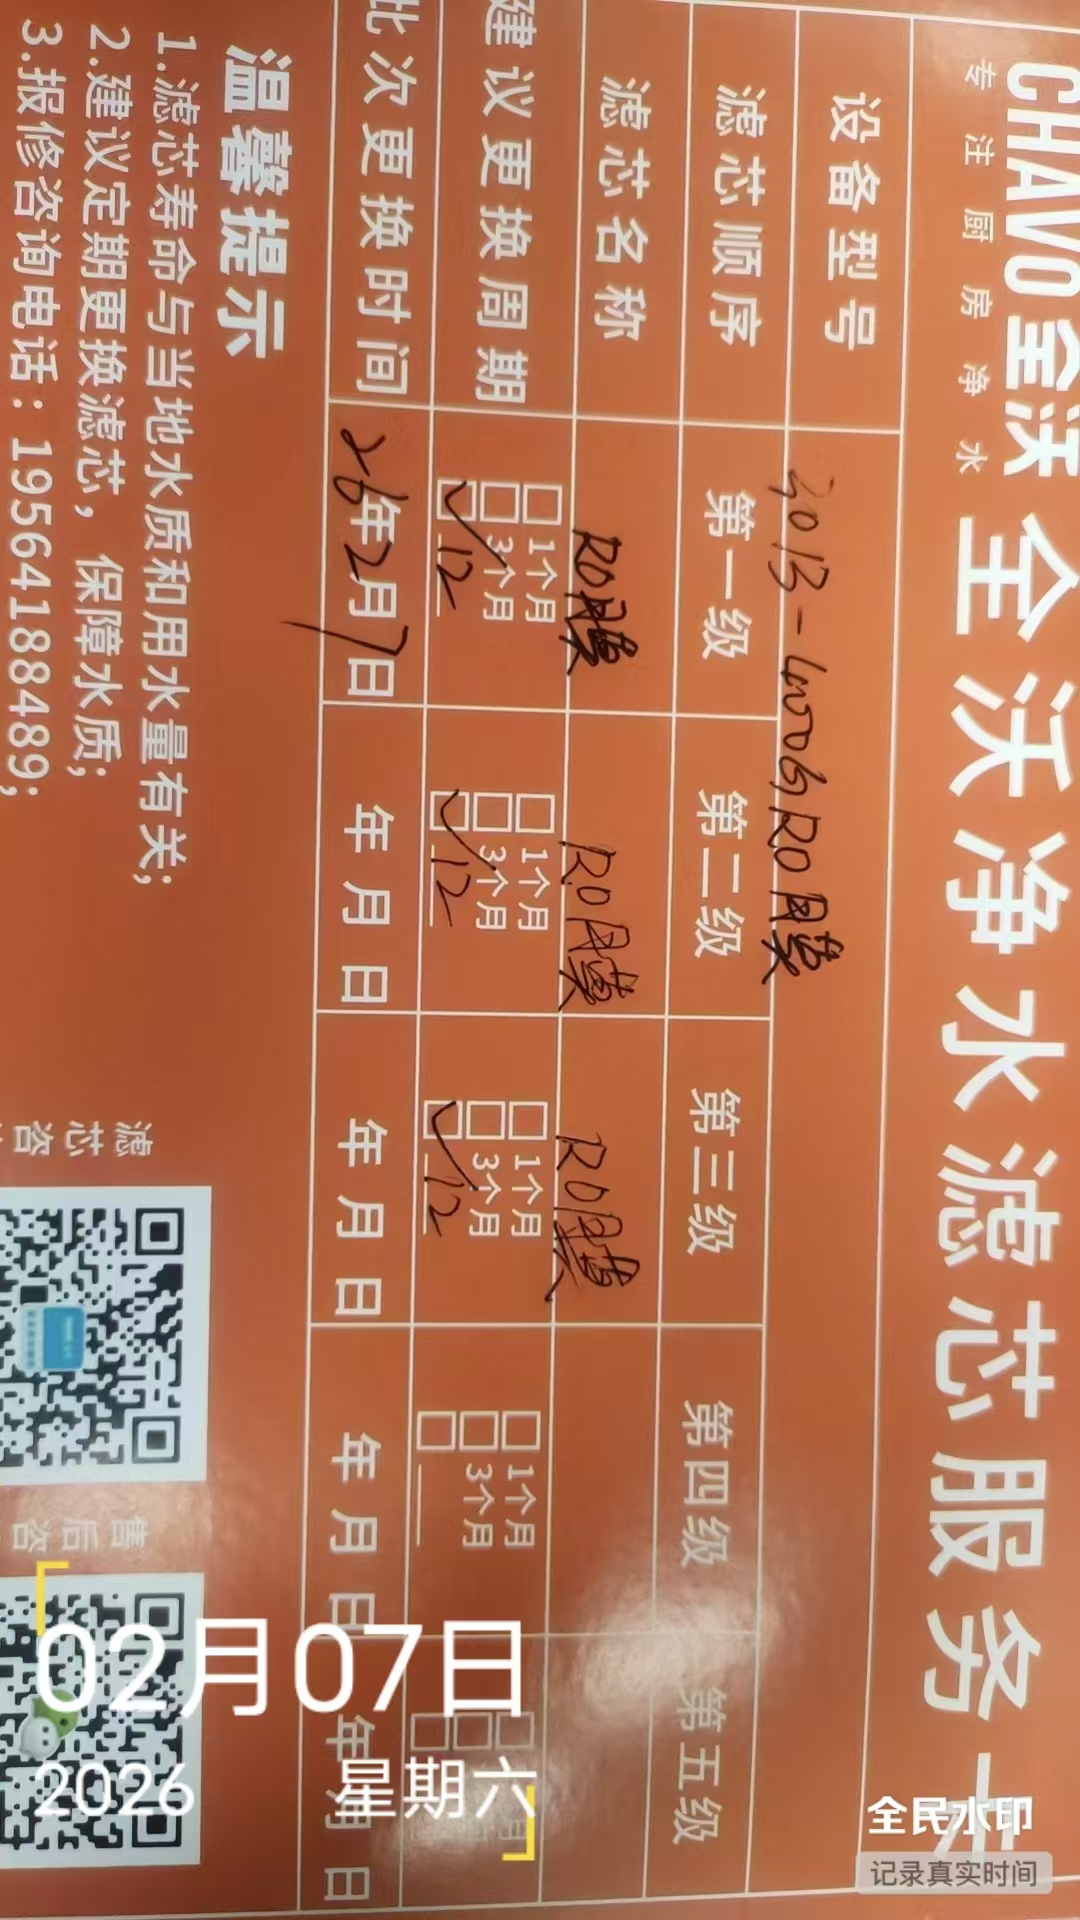 CHAVO全沃
专注厨房净水
全沃净水滤芯服务卡
设备型号 3013-400GRO膜
滤芯顺序 第一级 第二级 第三级 第四级 第五级
滤芯名称 RO膜 RO膜 RO膜
建议更换周期 1个月 3个月 12 1个月 3个月 12 1个月 3个月 12 1个月 3个月
此次更换时间 26年2月7日 年月日 年月日 年月日 年月日
温馨提示
1.滤芯寿命与当地水质和用水量有关;
2.建议定期更换滤芯，保障水质;
3.报修咨询电话：19564188489;
滤芯咨
售后咨
02月07日
2026 星期六
全民水印
记录真实时间